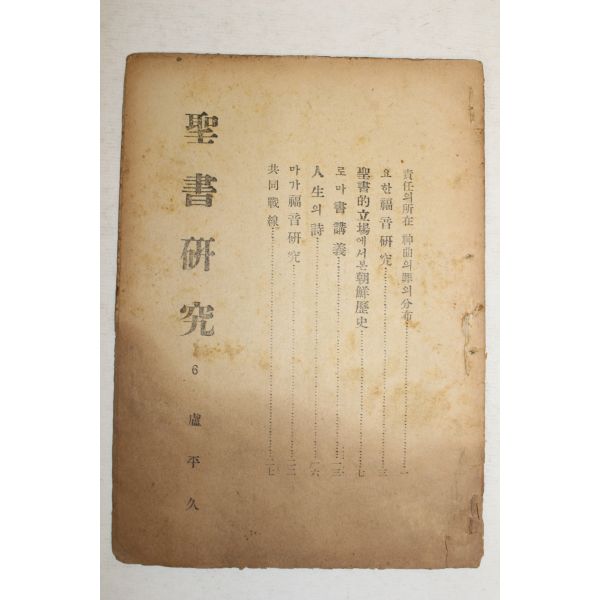 責任의所在 神曲의罪의分布……一
요한福音硏究……三
聖書的立場에서본朝鮮歷史……七
로마書講義……一三
人生의詩……一六
마가福音硏究……二二
共同戰線……二七
聖書硏究 6 盧平久